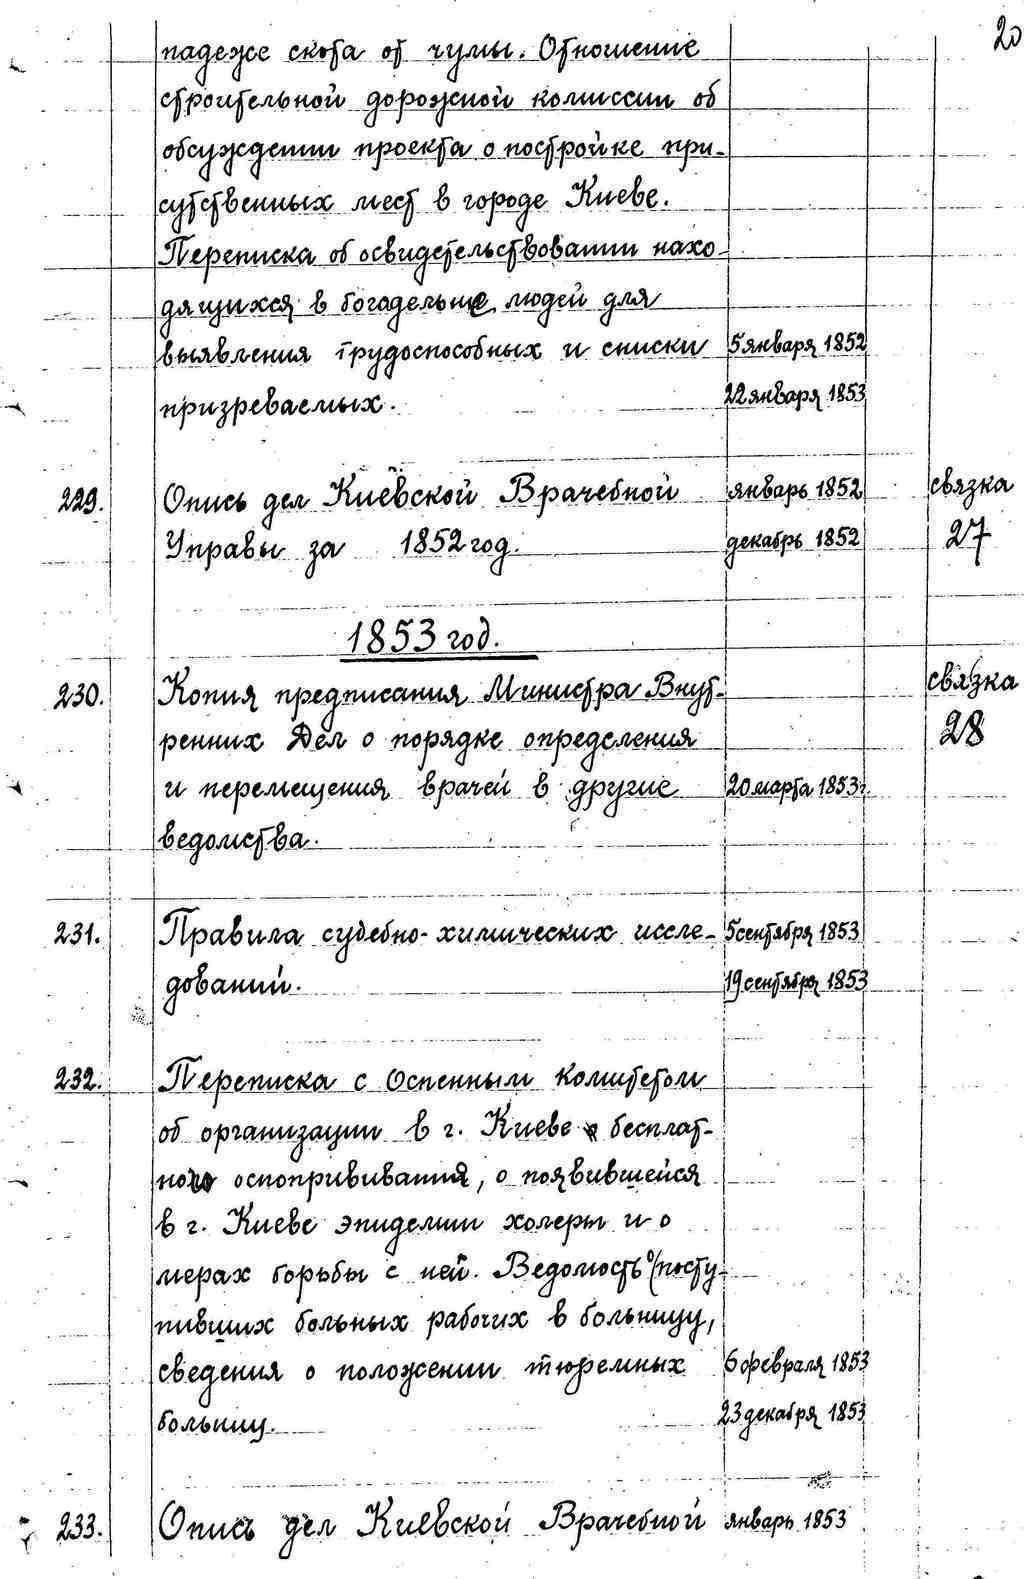 20
падеже скота от чумы. Отношение
строительной дорожной комиссии об
обсуждении проекта о постройке при-
сутственных мест в городе Киеве.
Переписка об освидетельствовании нахо-
дящихся в богадельне людей для
выявления трудоспособных и списки 5 января 1852
призреваемых. 22 января 1853
229. Опись дел Киевской Врачебной январь 1852 связка
Управы за 1852 год. декабрь 1852 27
1853 год.
230. Копия предписания Министра Внут- связка
ренних Дел о порядке определения 28
и перемещения врачей в другие 20 марта 1853г.
ведомства.
231. Правила судебно-химических иссле- 5 сентября 1853
дований. 19 сентября 1853
232. Переписка с Оспенным комитетом
об организации в г. Киеве бесплат-
ного оспопрививания, о появившейся
в г. Киеве эпидемии холеры и о
мерах борьбы с ней. Ведомость о посту-
пивших больных рабочих в больницу,
сведения о положении тюремных 6 февраля 1853
больниц. 23 декабря 1853
233. Опись дел Киевской Врачебной январь 1853